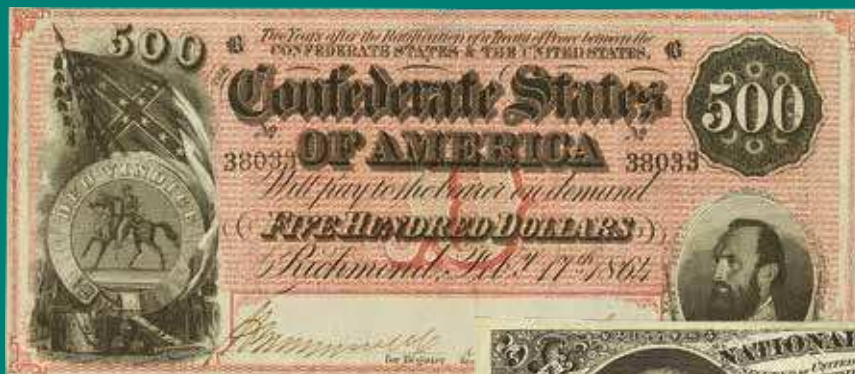 500
Two Years after the Ratification of a Treaty of Peace between the
CONFEDERATE STATES & THE UNITED STATES,
Confederate States
500
No No
38033 OF AMERICA 38033
DEO VINDICE
Will pay to the bearer on demand
D
FIVE HUNDRED DOLLARS
Richmond, Feby. 17th 1864
for Register
NATIONAL
UNITED